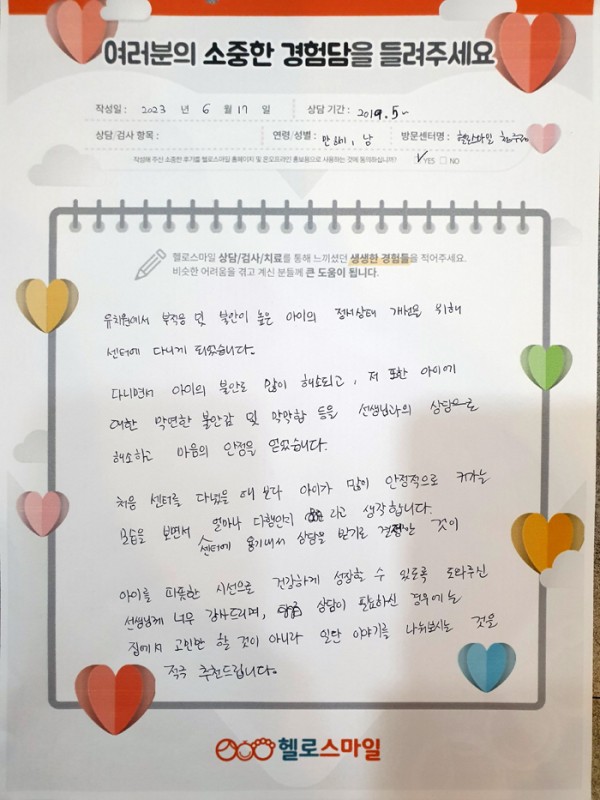 여러분의 소중한 경험담을 들려주세요
작성일 : 2023 년 6 월 17 일 상담 기간 : 2019. 5~
상담/검사 항목 : 연령/성별 : 만 8세, 남 방문센터명 : 헬로스마일
작성해 주신 소중한 후기를 헬로스마일 홈페이지 및 온오프라인 홍보용으로 사용하는 것에 동의하십니까? YES NO
헬로스마일 상담/검사/치료를 통해 느끼셨던 생생한 경험들을 적어주세요.
비슷한 어려움을 겪고 계신 분들께 큰 도움이 됩니다.
유치원에서 부적응 및 불안이 높은 아이의 정서상태 개선을 위해
센터에 다니게 되었습니다.
다니면서 아이의 불안도 많이 해소되고, 저 또한 아이에
대한 막연한 불안감 및 막막함 등을 선생님과의 상담으로
해소하고 마음의 안정을 얻었습니다.
처음 센터를 다녔을 때 보다 아이가 많이 안정적으로 커가는
모습을 보면서 얼마나 다행인지 라고 생각합니다.
센터에 용기내서 상담을 받기로 결정한 것이
아이를 따뜻한 시선으로 건강하게 성장할 수 있도록 도와주신
선생님께 너무 감사드리며, 상담이 필요하신 경우에는
집에서 고민만 할 것이 아니라 일단 이야기를 나눠보시는 것을
적극 추천드립니다.
헬로스마일